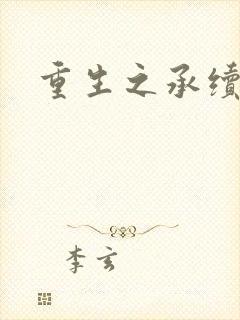 重生之承续
李玄